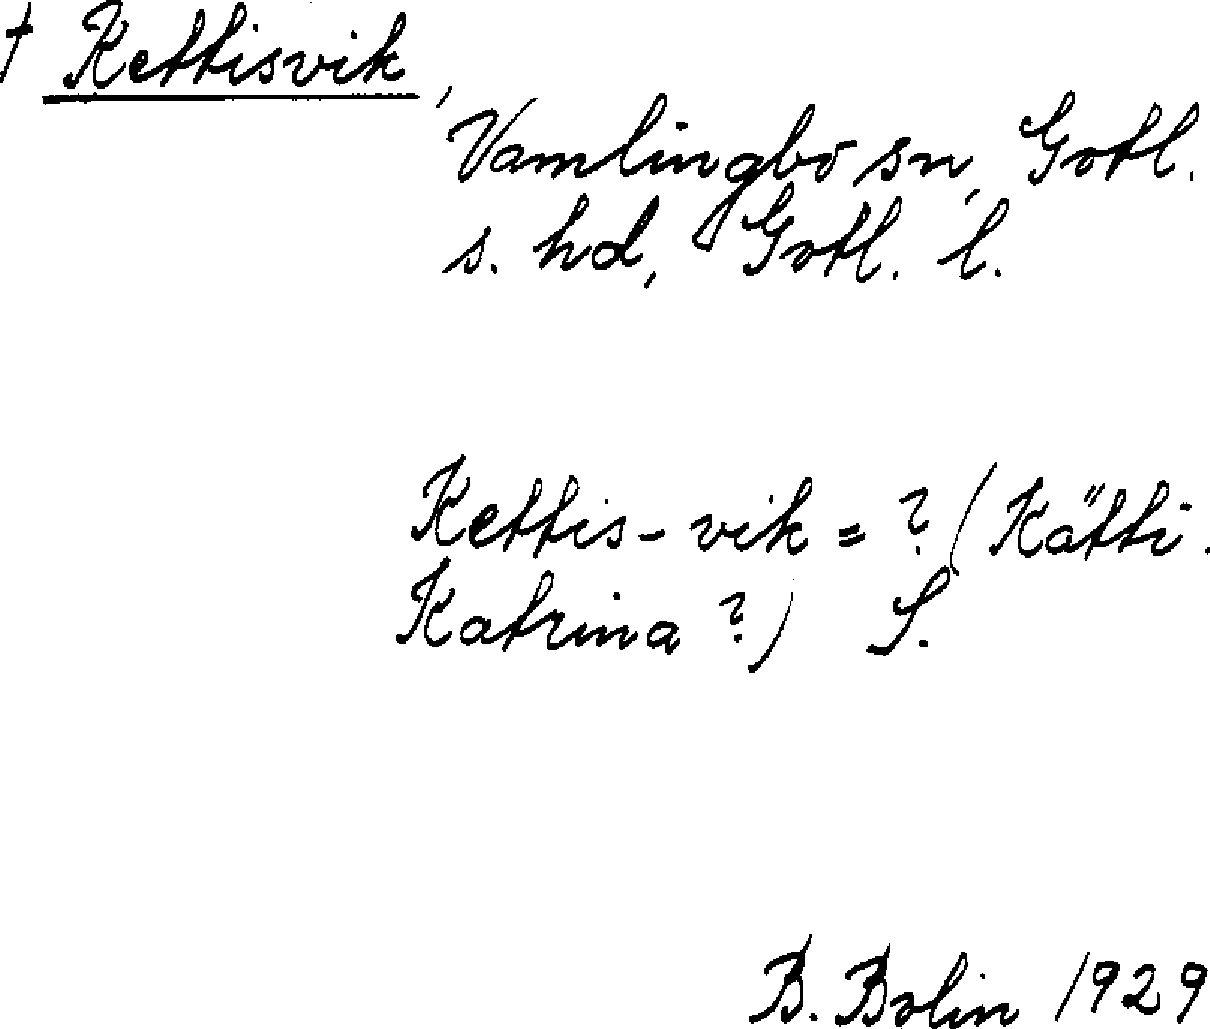 † Kettisvik,
Vamlingbo sn, Gotl.
s. hd, Gotl. l.
Kettis-vik = ? (Kätti.
Katrina ?) S.
B. Bolin 1929